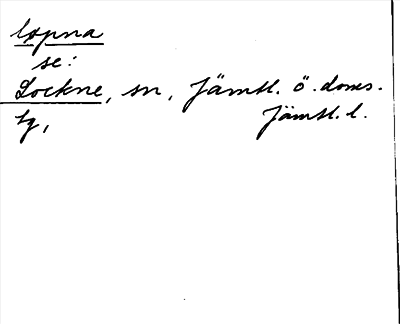 lopna
se:
Lockne, sn, Jämtl. ö. doms.
tg, Jämtl. l.